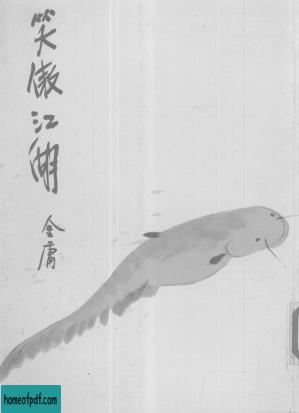 笑傲江湖
金庸
homeofpdf.com